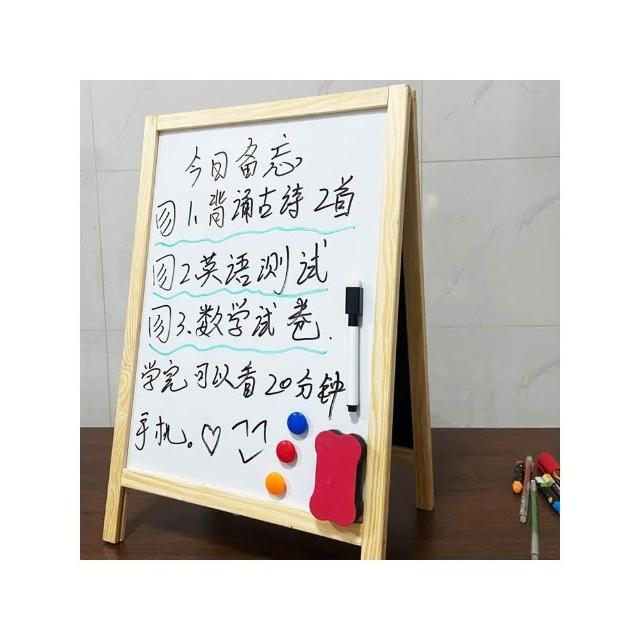 今日备忘
1.背诵古诗2首
2.英语测试
3.数学试卷.
学完可以看20分钟
手机。